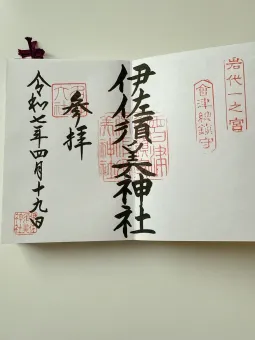 岩代一之宮
會津総鎮守
伊佐須美神社
参拝
令和七年四月十九日